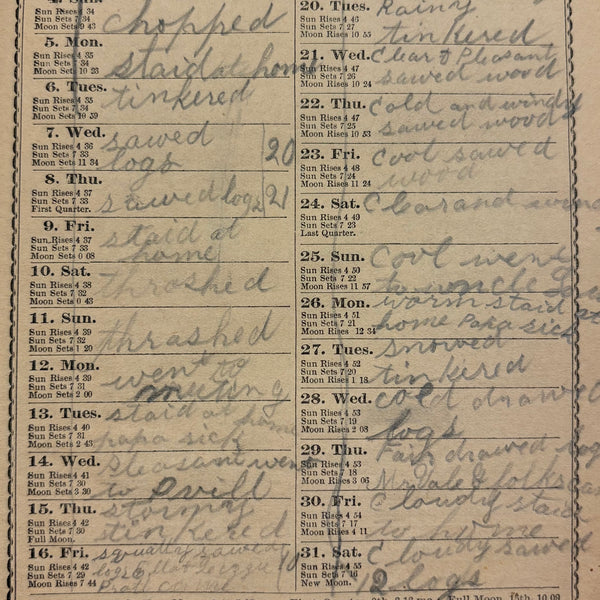 4. Sun.
Sun Rises 4 34
Sun Sets 7 34
Moon Sets 9 43
chopped
5. Mon.
Sun Rises 4 35
Sun Sets 7 34
Moon Sets 10 23
staid at home
6. Tues.
Sun Rises 4 35
Sun Sets 7 34
Moon Sets 10 59
tinkered
7. Wed.
Sun Rises 4 36
Sun Sets 7 33
Moon Sets 11 34
sawed
logs 20
8. Thu.
Sun Rises 4 37
Sun Sets 7 33
First Quarter.
sawed logs 21
9. Fri.
Sun Rises 4 37
Sun Sets 7 33
Moon Sets 0 08
staid at
home
10. Sat.
Sun Rises 4 38
Sun Sets 7 32
Moon Sets 0 43
thrashed
11. Sun.
Sun Rises 4 38
Sun Sets 7 32
Moon Sets 1 20
thrashed
12. Mon.
Sun Rises 4 39
Sun Sets 7 31
Moon Sets 2 00
went to
13. Tues.
Sun Rises 4 40
Sun Sets 7 31
Moon Sets 2 43
staid at home
papa sick
14. Wed.
Sun Rises 4 41
Sun Sets 7 30
Moon Sets 3 30
Pleasant went
to Pvill
15. Thu.
Sun Rises 4 42
Sun Sets 7 30
Full Moon.
stormy
tinkered
16. Fri.
Sun Rises 4 42
Sun Sets 7 29
Moon Rises 7 44
squally sawed
logs 10
20. Tues.
Sun Rises 4 46
Sun Sets 7 27
Moon Rises 10 55
Rainy
tinkered
21. Wed.
Sun Rises 4 47
Sun Sets 7 26
Moon Rises 10 24
Clear & Pleasant
sawed wood
22. Thu.
Sun Rises 4 47
Sun Sets 7 25
Moon Rises 10 53
Cold and windy
sawed wood
23. Fri.
Sun Rises 4 48
Sun Sets 7 24
Moon Rises 11 24
Cool sawed
wood
24. Sat.
Sun Rises 4 49
Sun Sets 7 23
Last Quarter.
Clear and wind
25. Sun.
Sun Rises 4 50
Sun Sets 7 22
Moon Rises 11 57
Cool went
to uncle
26. Mon.
Sun Rises 4 51
Sun Sets 7 21
Moon Rises 12 34
warm staid at
home Papa sick
27. Tues.
Sun Rises 4 52
Sun Sets 7 20
Moon Rises 1 18
snowed
tinkered
28. Wed.
Sun Rises 4 53
Sun Sets 7 19
Moon Rises 2 08
cold drawed
logs
29. Thu.
Sun Rises 4 53
Sun Sets 7 18
Moon Rises 3 06
Fair drawed logs
30. Fri.
Sun Rises 4 54
Sun Sets 7 17
Moon Rises 4 11
Cloudy staid
home
31. Sat.
Sun Rises 4 55
Sun Sets 7 16
New Moon.
Cloudy sawed
12 logs
Full Moon, 15th, 10.09